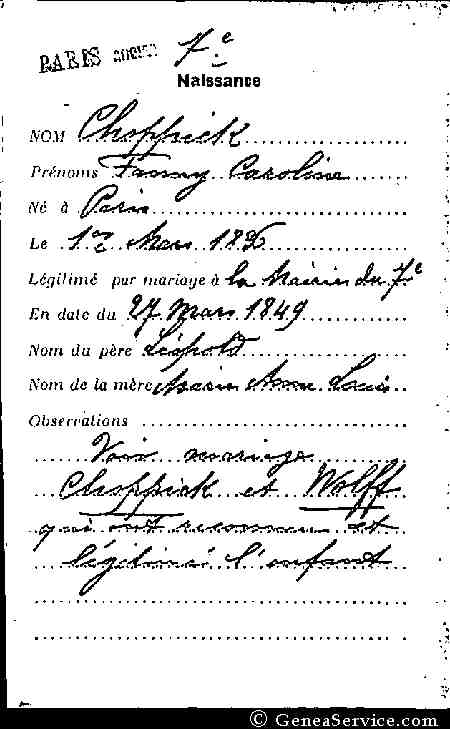 PARIS ancien 7e
Naissance
NOM Choppick
Prénoms Fanny Caroline
Né à Paris
Le 1er Mars 1836
Légitimé par mariage à la Mairie du 7e
En date du 27 Mars 1849
Nom du père Léopold
Nom de la mère Marie Anne Louise
Observations
Voir mariage
Choppick et Wolff
qui ont reconnu et
légitimé l'enfant
© GeneaService.com